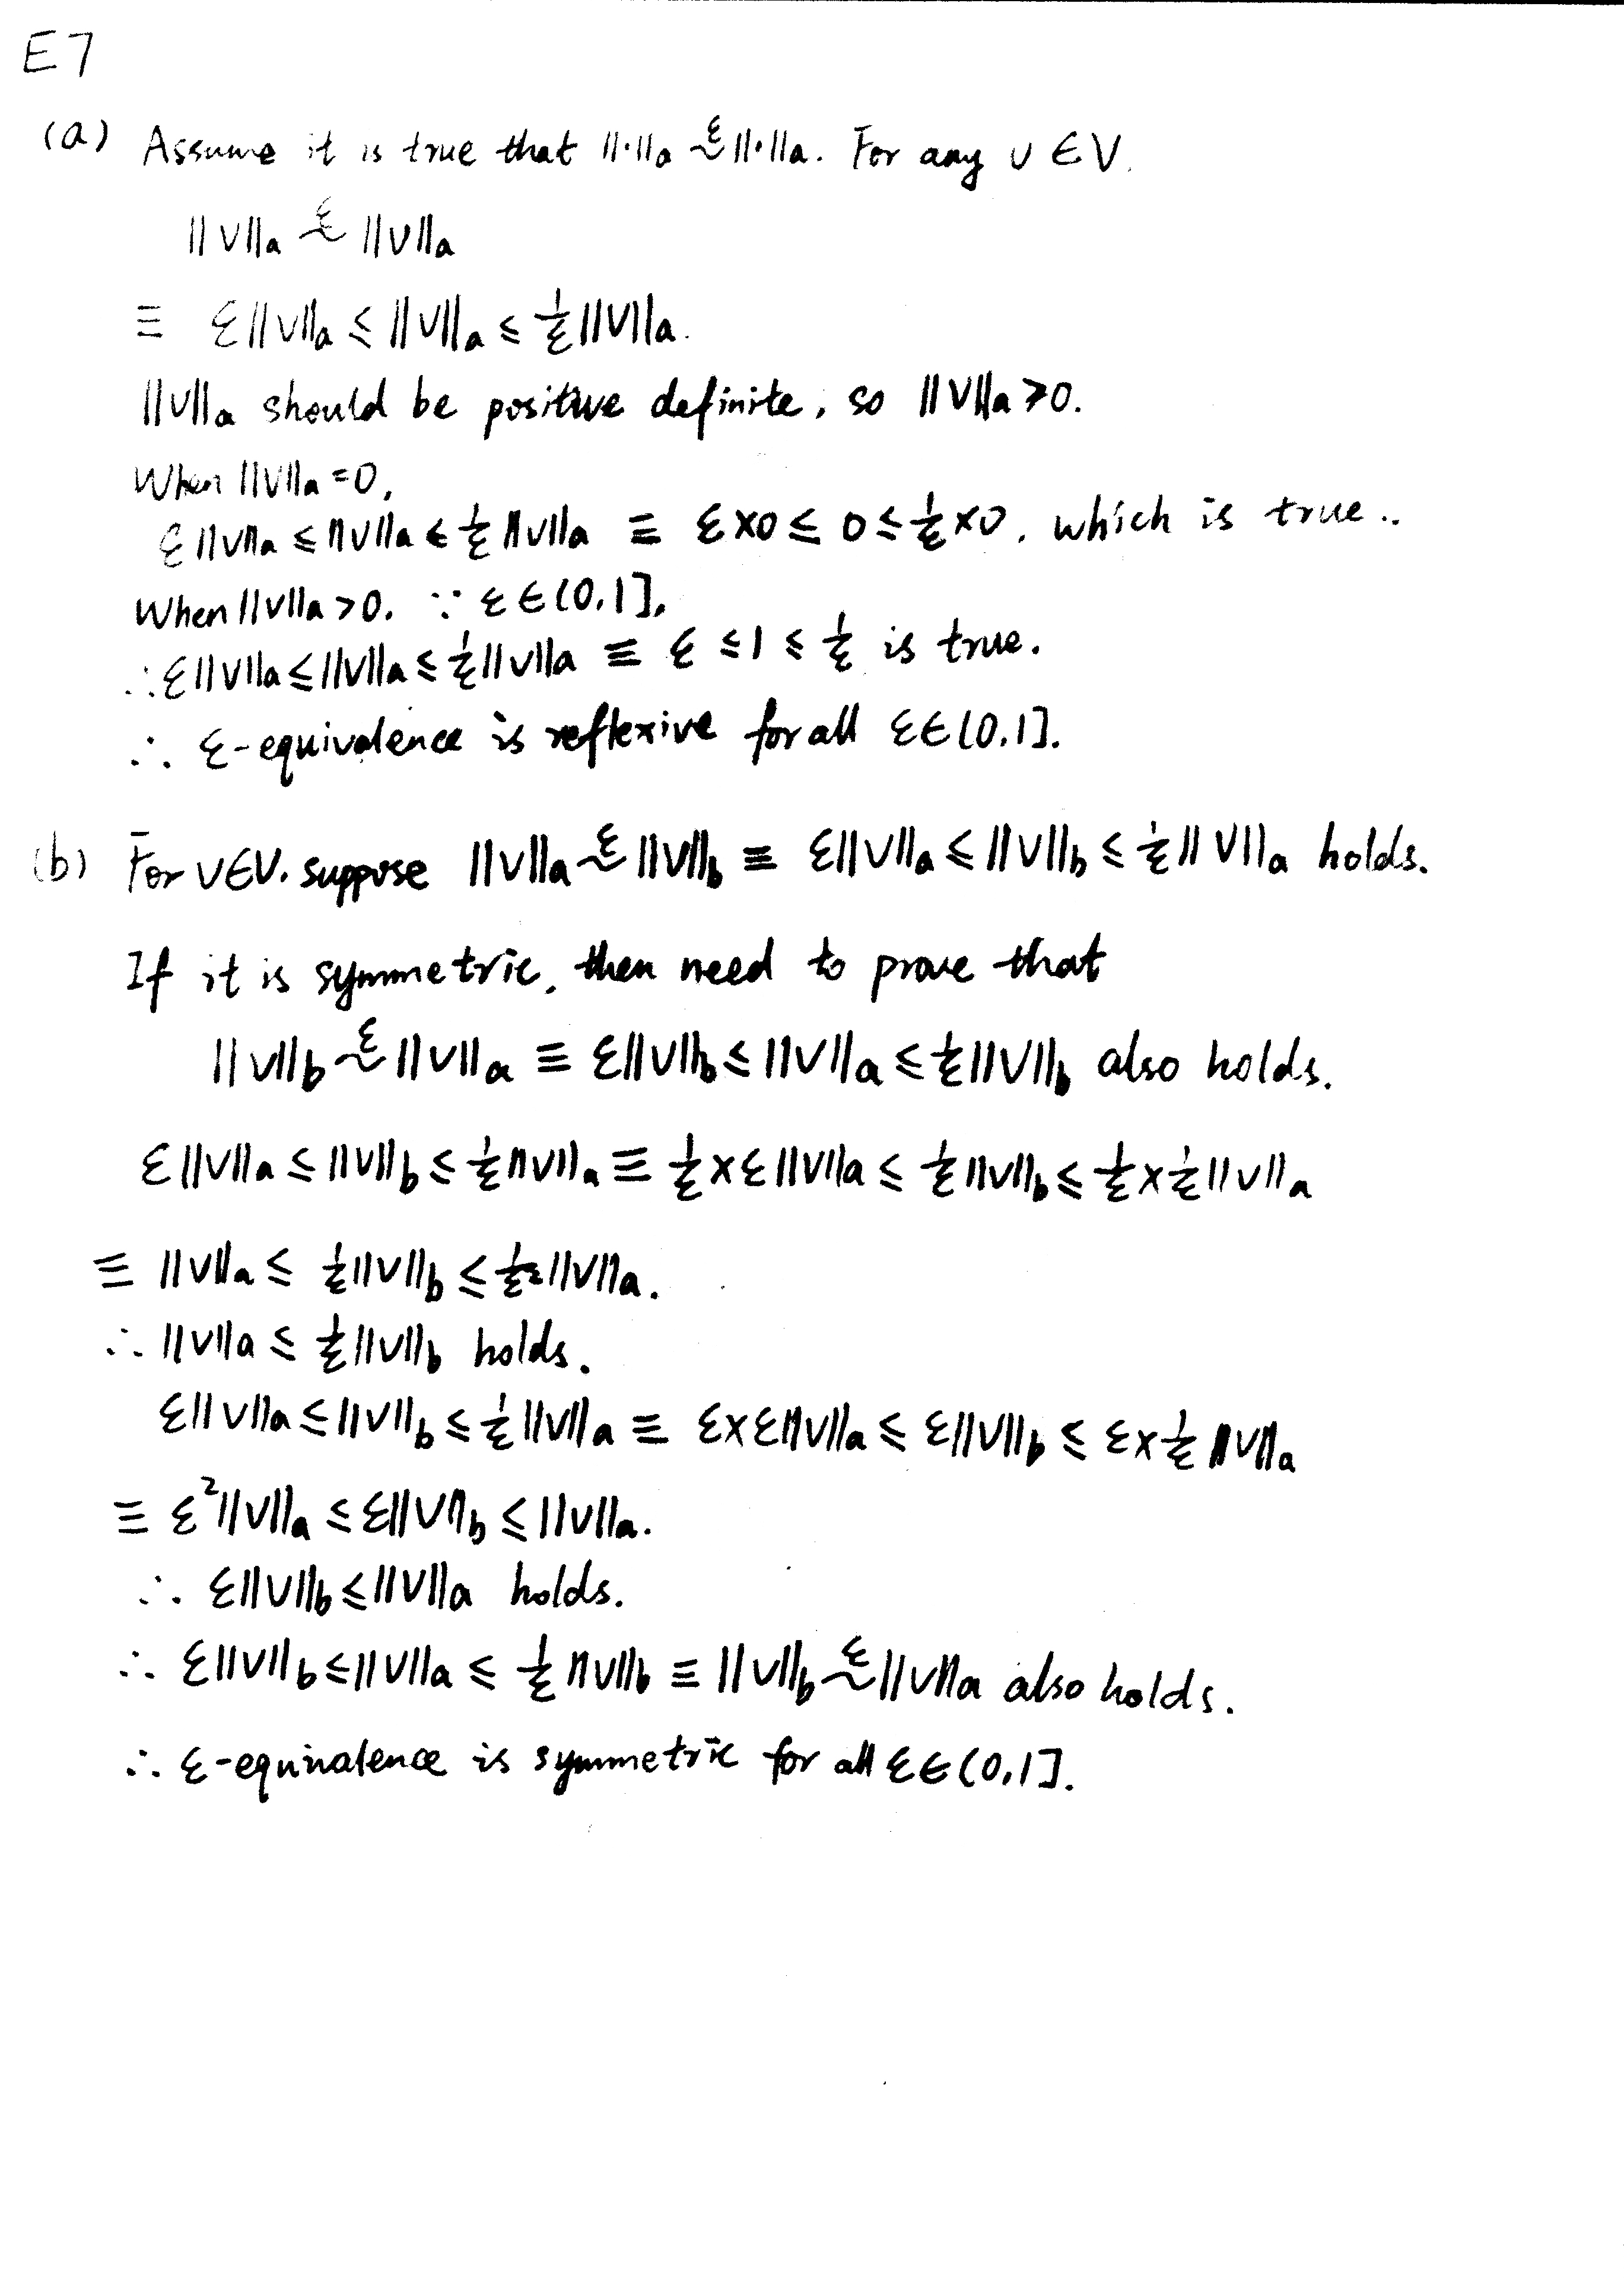 E7
(a) Assume it is true that ||·||a ~ε ||·||a. For any v ∈ V.
||v||a ~ε ||v||a
≡ ε||v||a ≤ ||v||a ≤ 1/ε ||v||a.
||v||a should be positive definite, so ||v||a ≥ 0.
When ||v||a = 0,
ε||v||a ≤ ||v||a ≤ 1/ε ||v||a ≡ ε×0 ≤ 0 ≤ 1/ε ×0, which is true..
When ||v||a > 0. ∵ ε ∈ (0,1],
∴ ε||v||a ≤ ||v||a ≤ 1/ε ||v||a ≡ ε ≤ 1 ≤ 1/ε is true.
∴ ε-equivalence is reflexive for all ε ∈ (0,1].
(b) For v ∈ V. suppose ||v||a ~ε ||v||b ≡ ε||v||a ≤ ||v||b ≤ 1/ε ||v||a holds.
If it is symmetric, then need to prove that
||v||b ~ε ||v||a ≡ ε||v||b ≤ ||v||a ≤ 1/ε ||v||b also holds.
ε||v||a ≤ ||v||b ≤ 1/ε ||v||a ≡ 1/ε × ε||v||a ≤ 1/ε ||v||b ≤ 1/ε × 1/ε ||v||a
≡ ||v||a ≤ 1/ε ||v||b ≤ 1/ε² ||v||a.
∴ ||v||a ≤ 1/ε ||v||b holds.
ε||v||a ≤ ||v||b ≤ 1/ε ||v||a ≡ ε×ε||v||a ≤ ε||v||b ≤ ε × 1/ε ||v||a
≡ ε²||v||a ≤ ε||v||b ≤ ||v||a.
∴ ε||v||b ≤ ||v||a holds.
∴ ε||v||b ≤ ||v||a ≤ 1/ε ||v||b ≡ ||v||b ~ε ||v||a also holds.
∴ ε-equivalence is symmetric for all ε ∈ (0,1].